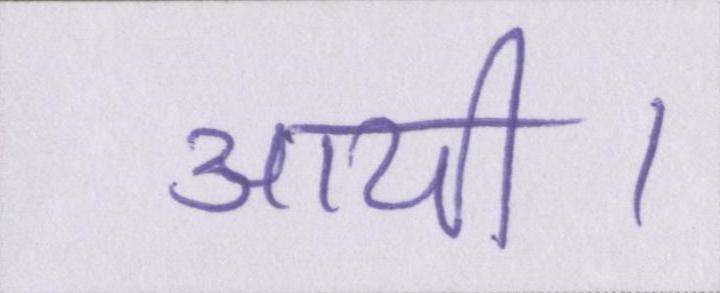 आयी।